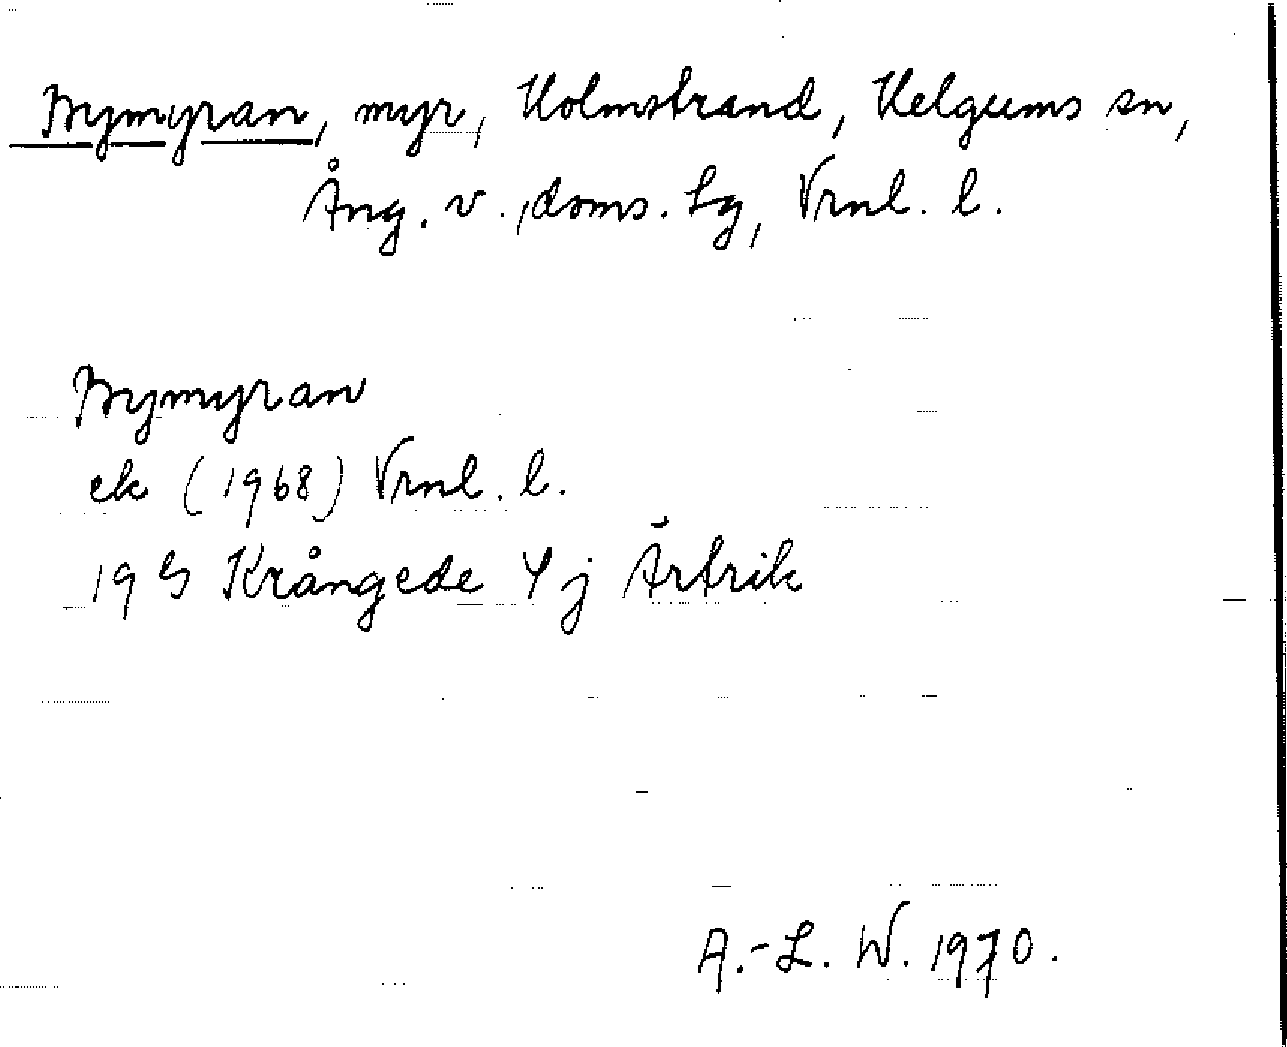 Nymyran, myr, Holmstrand, Helgums sn,
Ång. v. doms. lg, Vrnl. l.
Nymyran
ek (1968) Vrnl. l.
19 G Krångede 4 j Ärtrik
A.-L. W. 1970.